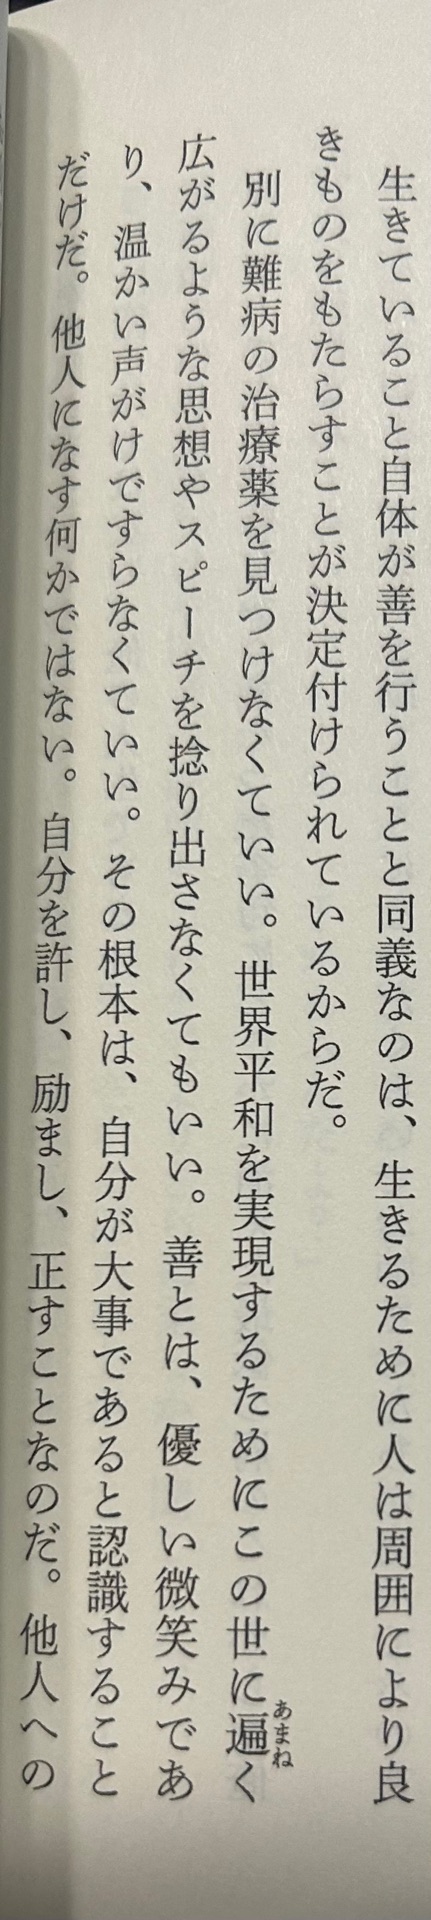 生きていること自体が善を行うことと同義なのは、生きるために人は周囲により良
きものをもたらすことが決定付けられているからだ。
別に難病の治療薬を見つけなくていい。世界平和を実現するためにこの世に遍く
あまね
広がるような思想やスピーチを捻り出さなくてもいい。善とは、優しい微笑みであ
り、温かい声がけですらなくていい。その根本は、自分が大事であると認識すること
だけだ。他人になす何かではない。自分を許し、励まし、正すことなのだ。他人への